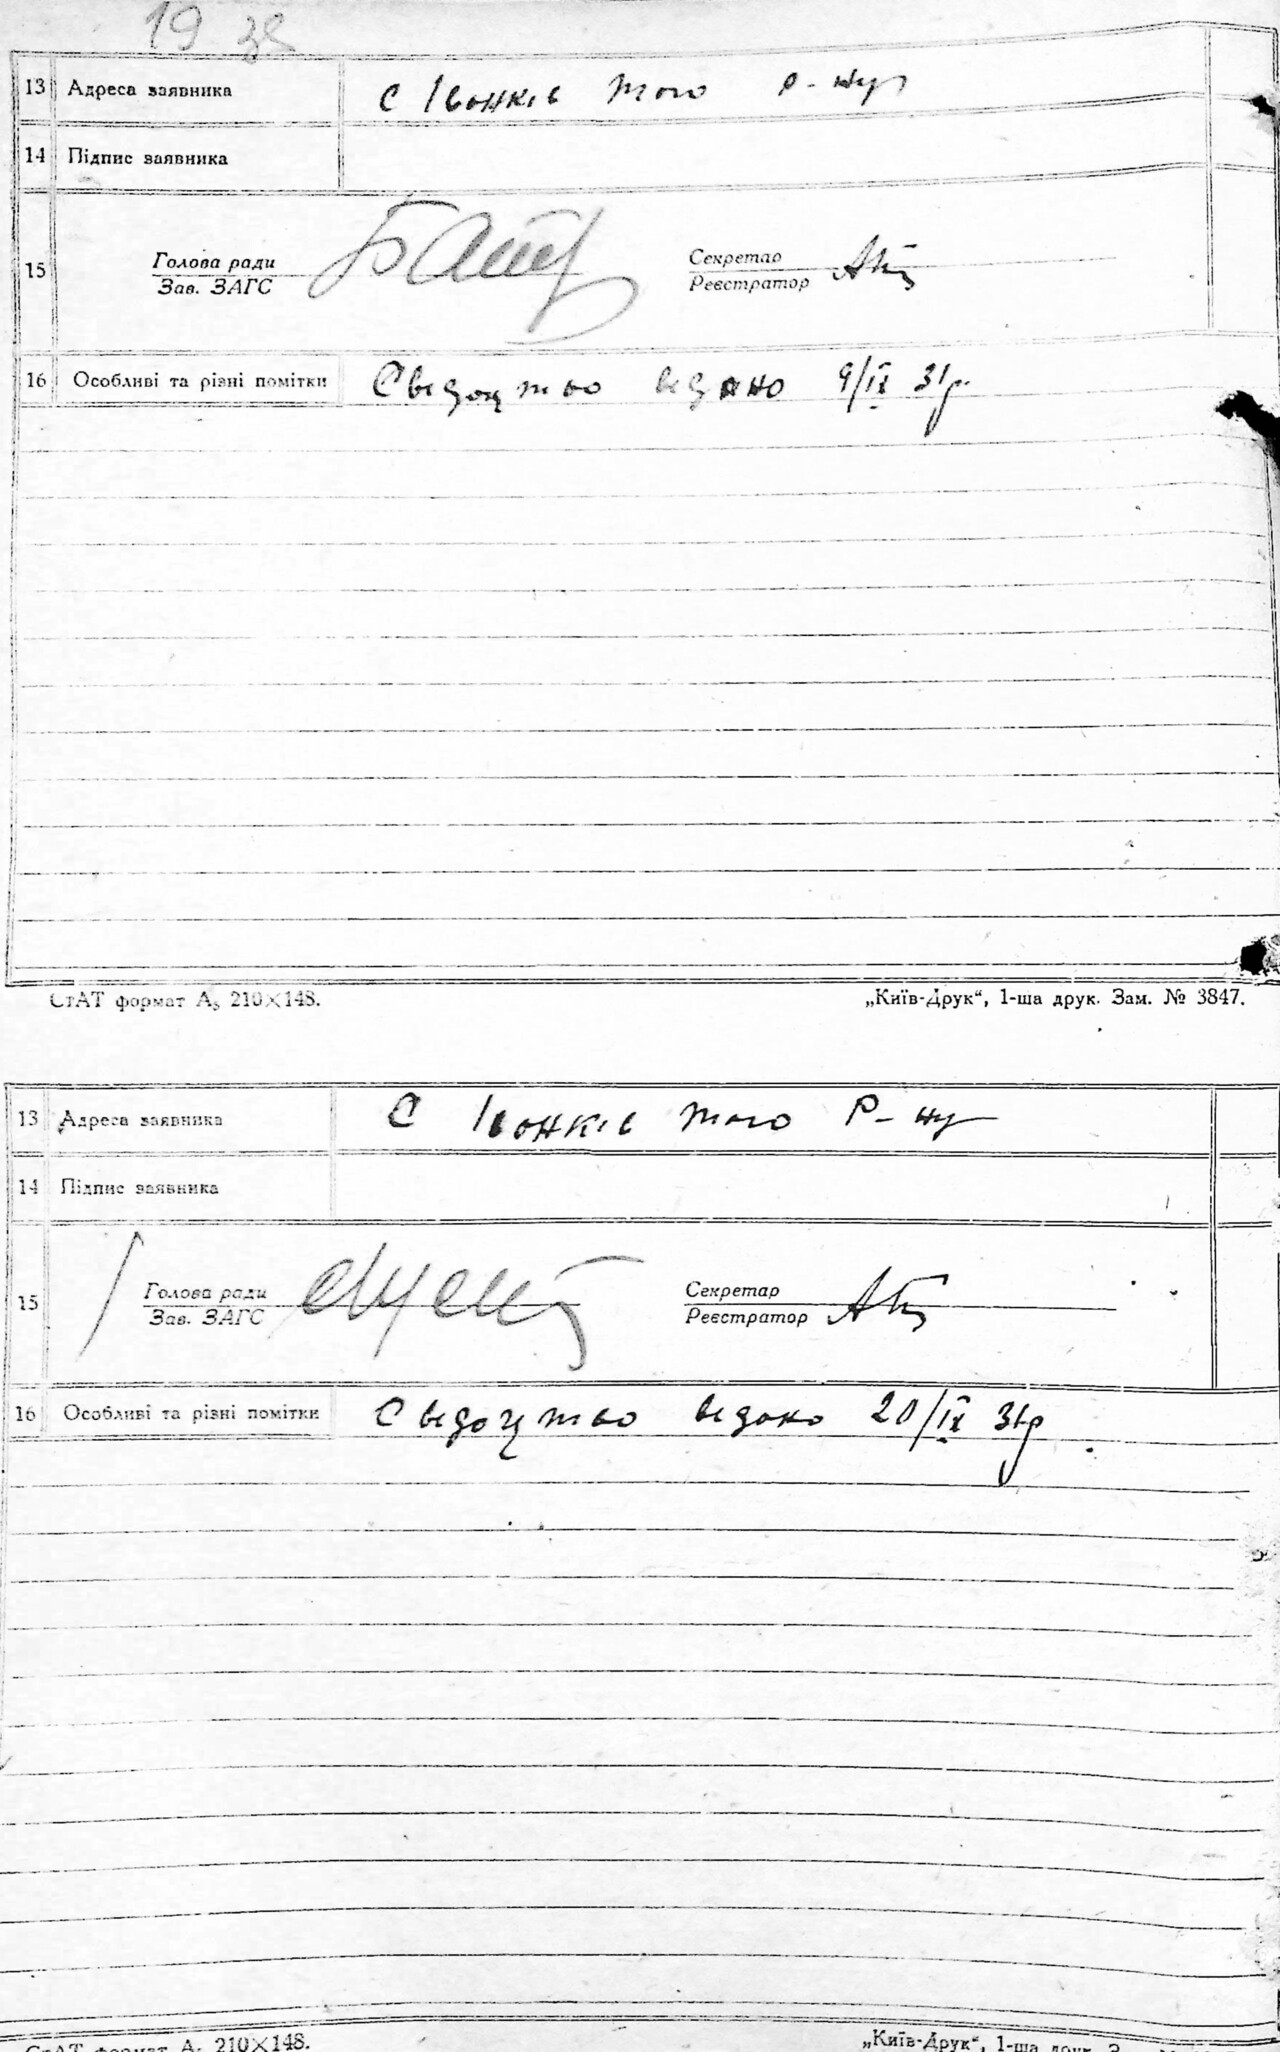 19 38
13 Адреса заявника с Іванків того р-ну
14 Підпис заявника
15 Голова ради Секретар
Зав. ЗАГС Реєстратор
16 Особливі та різні помітки Свідоцтво видано 9/ІХ 31р.
СтАТ формат А₅ 210×148. „Київ-Друк“, 1-ша друк. Зам. № 3847.
13 Адреса заявника с Іванків того Р-ну
14 Підпис заявника
15 Голова ради Секретар
Зав. ЗАГС Реєстратор
16 Особливі та різні помітки Свідоцтво видано 20/ІХ 31р
СтАТ формат А₅ 210×148. „Київ-Друк“, 1-ша друк.